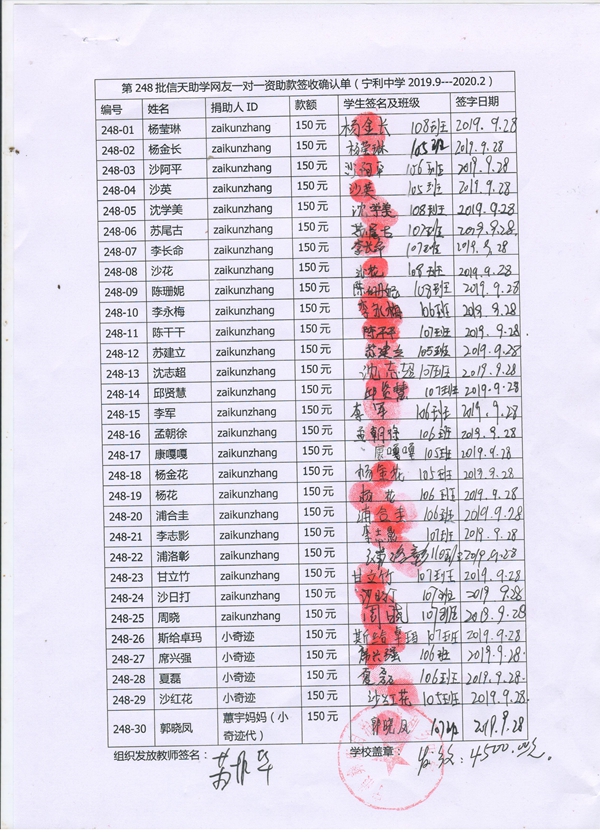 第 248 批信天助学网友一对一资助款签收确认单（宁利中学 2019.9---2020.2）
编号 姓名 捐助人 ID 款额 学生签名及班级 签字日期
248-01 杨莹琳 zaikunzhang 150 元 杨金长 108班 2019.9.28
248-02 杨金长 zaikunzhang 150 元 杨莹琳 105班 2019.9.28
248-03 沙阿平 zaikunzhang 150 元 沙阿平 106班 2019.9.28
248-04 沙英 zaikunzhang 150 元 沙英 105班 2019.9.28
248-05 沈学美 zaikunzhang 150 元 沈学美 108班 2019.9.28
248-06 苏尾古 zaikunzhang 150 元 苏尾古 107班 2019.9.28
248-07 李长命 zaikunzhang 150 元 李长命 107班 2019.9.28
248-08 沙花 zaikunzhang 150 元 沙花 108班 2019.9.28
248-09 陈珊妮 zaikunzhang 150 元 陈珊妮 108班 2019.9.28
248-10 李永梅 zaikunzhang 150 元 李永梅 106班 2019.9.28
248-11 陈干干 zaikunzhang 150 元 陈干干 107班 2019.9.28
248-12 苏建立 zaikunzhang 150 元 苏建立 105班 2019.9.28
248-13 沈志超 zaikunzhang 150 元 沈志超 107班 2019.9.28
248-14 邱贤慧 zaikunzhang 150 元 邱贤慧 107班 2019.9.28
248-15 李军 zaikunzhang 150 元 李军 106班 2019.9.28
248-16 孟朝徐 zaikunzhang 150 元 孟朝徐 106班 2019.9.28
248-17 康嘎嘎 zaikunzhang 150 元 康嘎嘎 105班 2019.9.28
248-18 杨金花 zaikunzhang 150 元 杨金花 105班 2019.9.28
248-19 杨花 zaikunzhang 150 元 杨花 106班 2019.9.28
248-20 浦合圭 zaikunzhang 150 元 浦合圭 106班 2019.9.28
248-21 李志影 zaikunzhang 150 元 李志影 107班 2019.9.28
248-22 浦洛彰 zaikunzhang 150 元 浦洛彰 2019.9.28
248-23 甘立竹 zaikunzhang 150 元 甘立竹 107班 2019.9.28
248-24 沙日打 zaikunzhang 150 元 沙日打 107班 2019.9.28
248-25 周晓 zaikunzhang 150 元 周晓 107班 2019.9.28
248-26 斯给卓玛 小奇迹 150 元 斯给卓玛 107班 2019.9.28
248-27 席兴强 小奇迹 150 元 席兴强 106班 2019.9.28
248-28 夏磊 小奇迹 150 元 夏磊 106班 2019.9.28
248-29 沙红花 小奇迹 150 元 沙红花 105班 2019.9.28
248-30 郭晓凤 蕙宇妈妈（小奇迹代） 150 元 郭晓凤 107班 2019.9.28
组织发放教师签名： 学校盖章： 4500.00元